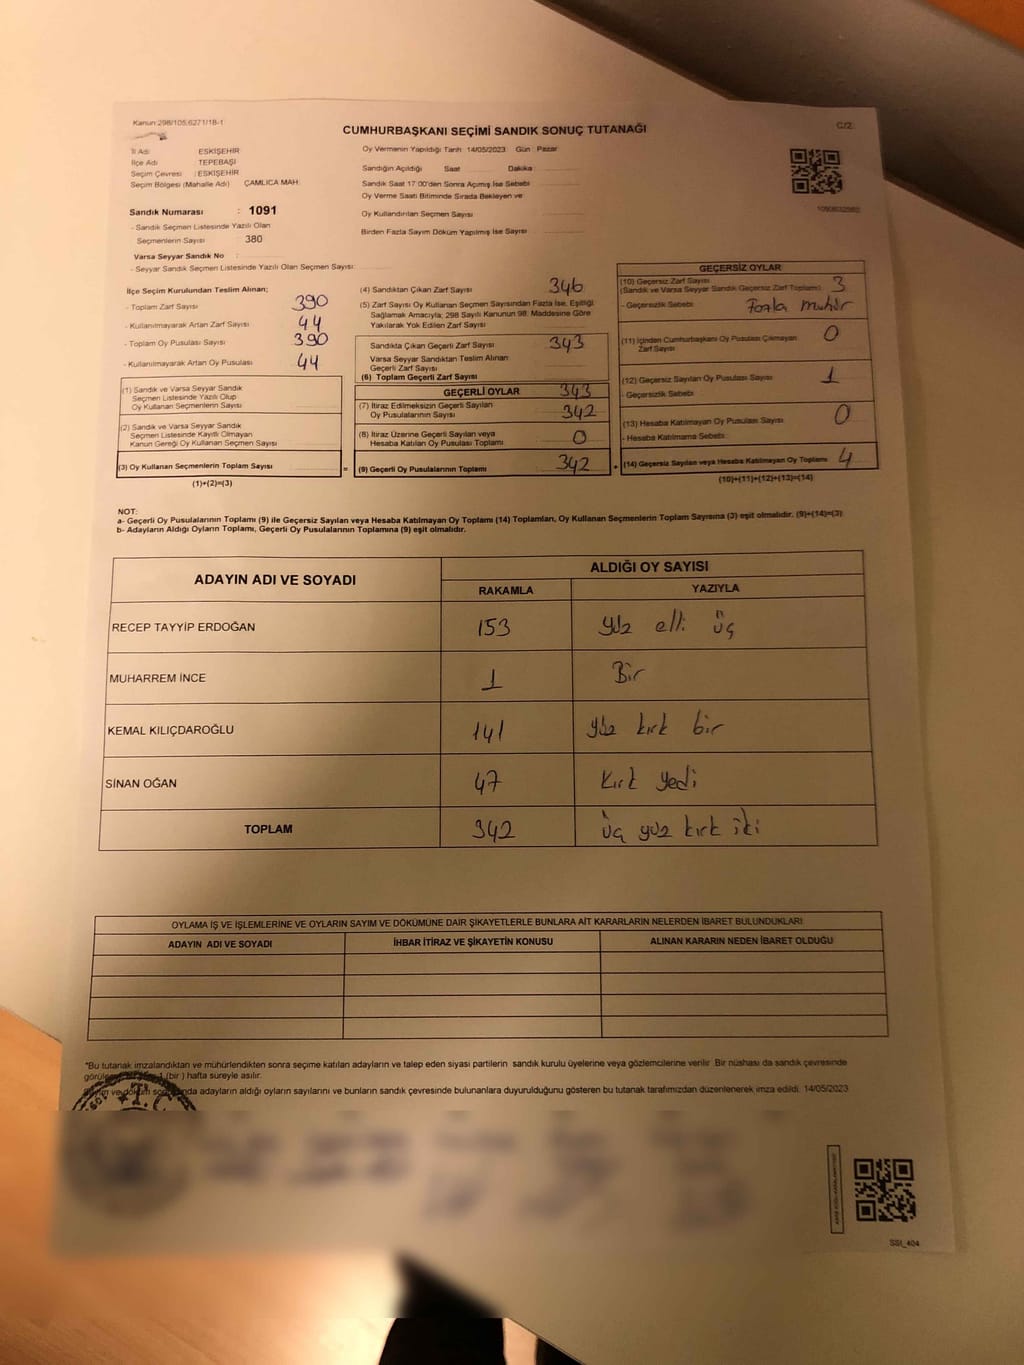 Kanun:298/105,6271/18-1
CUMHURBAŞKANI SEÇİMİ SANDIK SONUÇ TUTANAĞI
C/2
İl Adı : ESKİŞEHİR
İlçe Adı : TEPEBAŞI
Seçim Çevresi : ESKİŞEHİR
Seçim Bölgesi (Mahalle Adı) : ÇAMLICA MAH.
Sandık Numarası : 1091
- Sandık Seçmen Listesinde Yazılı Olan
Seçmenlerin Sayısı 380
Varsa Seyyar Sandık No :
- Seyyar Sandık Seçmen Listesinde Yazılı Olan Seçmen Sayısı:
Oy Vermenin Yapıldığı Tarih: 14/05/2023 Gün : Pazar
Sandığın Açıldığı Saat Dakika
Sandık Saat 17:00'den Sonra Açılmış İse Sebebi
Oy Verme Saati Bitiminde Sırada Bekleyen ve
Oy Kullandırılan Seçmen Sayısı
Birden Fazla Sayım Döküm Yapılmış İse Sayısı
İlçe Seçim Kurulundan Teslim Alınan;
- Toplam Zarf Sayısı 390
- Kullanılmayarak Artan Zarf Sayısı 44
- Toplam Oy Pusulası Sayısı 390
- Kullanılmayarak Artan Oy Pusulası 44
(1) Sandık ve Varsa Seyyar Sandık
Seçmen Listesinde Yazılı Olup
Oy Kullanan Seçmenlerin Sayısı
(2) Sandık ve Varsa Seyyar Sandık
Seçmen Listesinde Kayıtlı Olmayan
Kanun Gereği Oy Kullanan Seçmen Sayısı
(3) Oy Kullanan Seçmenlerin Toplam Sayısı =
(1)+(2)=(3)
(4) Sandıktan Çıkan Zarf Sayısı 346
(5) Zarf Sayısı Oy Kullanan Seçmen Sayısından Fazla İse, Eşitliği
Sağlamak Amacıyla; 298 Sayılı Kanunun 98. Maddesine Göre
Yakılarak Yok Edilen Zarf Sayısı
Sandıkta Çıkan Geçerli Zarf Sayısı 343
Varsa Seyyar Sandıktan Teslim Alınan
Geçerli Zarf Sayısı
(6) Toplam Geçerli Zarf Sayısı
GEÇERLİ OYLAR 343
(7) İtiraz Edilmeksizin Geçerli Sayılan
Oy Pusulalarının Sayısı 342
(8) İtiraz Üzerine Geçerli Sayılan veya
Hesaba Katılan Oy Pusulası Toplamı 0
(9) Geçerli Oy Pusulalarının Toplamı 342 +
GEÇERSİZ OYLAR
(10) Geçersiz Zarf Sayısı 3
(Sandık ve Varsa Seyyar Sandık Geçersiz Zarf Toplamı)
- Geçersizlik Sebebi: Fazla mühür
(11) İçinden Cumhurbaşkanı Oy Pusulası Çıkmayan
Zarf Sayısı 0
(12) Geçersiz Sayılan Oy Pusulası Sayısı 1
- Geçersizlik Sebebi:
(13) Hesaba Katılmayan Oy Pusulası Sayısı 0
- Hesaba Katılmama Sebebi:
(14) Geçersiz Sayılan veya Hesaba Katılmayan Oy Toplamı 4
(10)+(11)+(12)+(13)=(14)
NOT:
a- Geçerli Oy Pusulalarının Toplamı (9) ile Geçersiz Sayılan veya Hesaba Katılmayan Oy Toplamı (14) Toplamları, Oy Kullanan Seçmenlerin Toplam Sayısına (3) eşit olmalıdır. (9)+(14)=(3)
b- Adayların Aldığı Oyların Toplamı, Geçerli Oy Pusulalarının Toplamına (9) eşit olmalıdır.
ADAYIN ADI VE SOYADI
ALDIĞI OY SAYISI
RAKAMLA YAZIYLA
RECEP TAYYİP ERDOĞAN 153 yüz elli üç
MUHARREM İNCE 1 Bir
KEMAL KILIÇDAROĞLU 141 yüz kırk bir
SİNAN OĞAN 47 kırk yedi
TOPLAM 342 üç yüz kırk iki
OYLAMA İŞ VE İŞLEMLERİNE VE OYLARIN SAYIM VE DÖKÜMÜNE DAİR ŞİKAYETLERLE BUNLARA AİT KARARLARIN NELERDEN İBARET BULUNDUKLARI
ADAYIN ADI VE SOYADI İHBAR İTİRAZ VE ŞİKAYETİN KONUSU ALINAN KARARIN NEDEN İBARET OLDUĞU
*Bu tutanak imzalandıktan ve mühürlendikten sonra seçime katılan adayların ve talep eden siyasi partilerin sandık kurulu üyelerine veya gözlemcilerine verilir. Bir nüshası da sandık çevresinde
1 (bir) hafta süreyle asılır.
adayların aldığı oyların sayılarını ve bunların sandık çevresinde bulunanlara duyurulduğunu gösteren bu tutanak tarafımızdan düzenlenerek imza edildi. 14/05/2023
T.C.
SSI_404